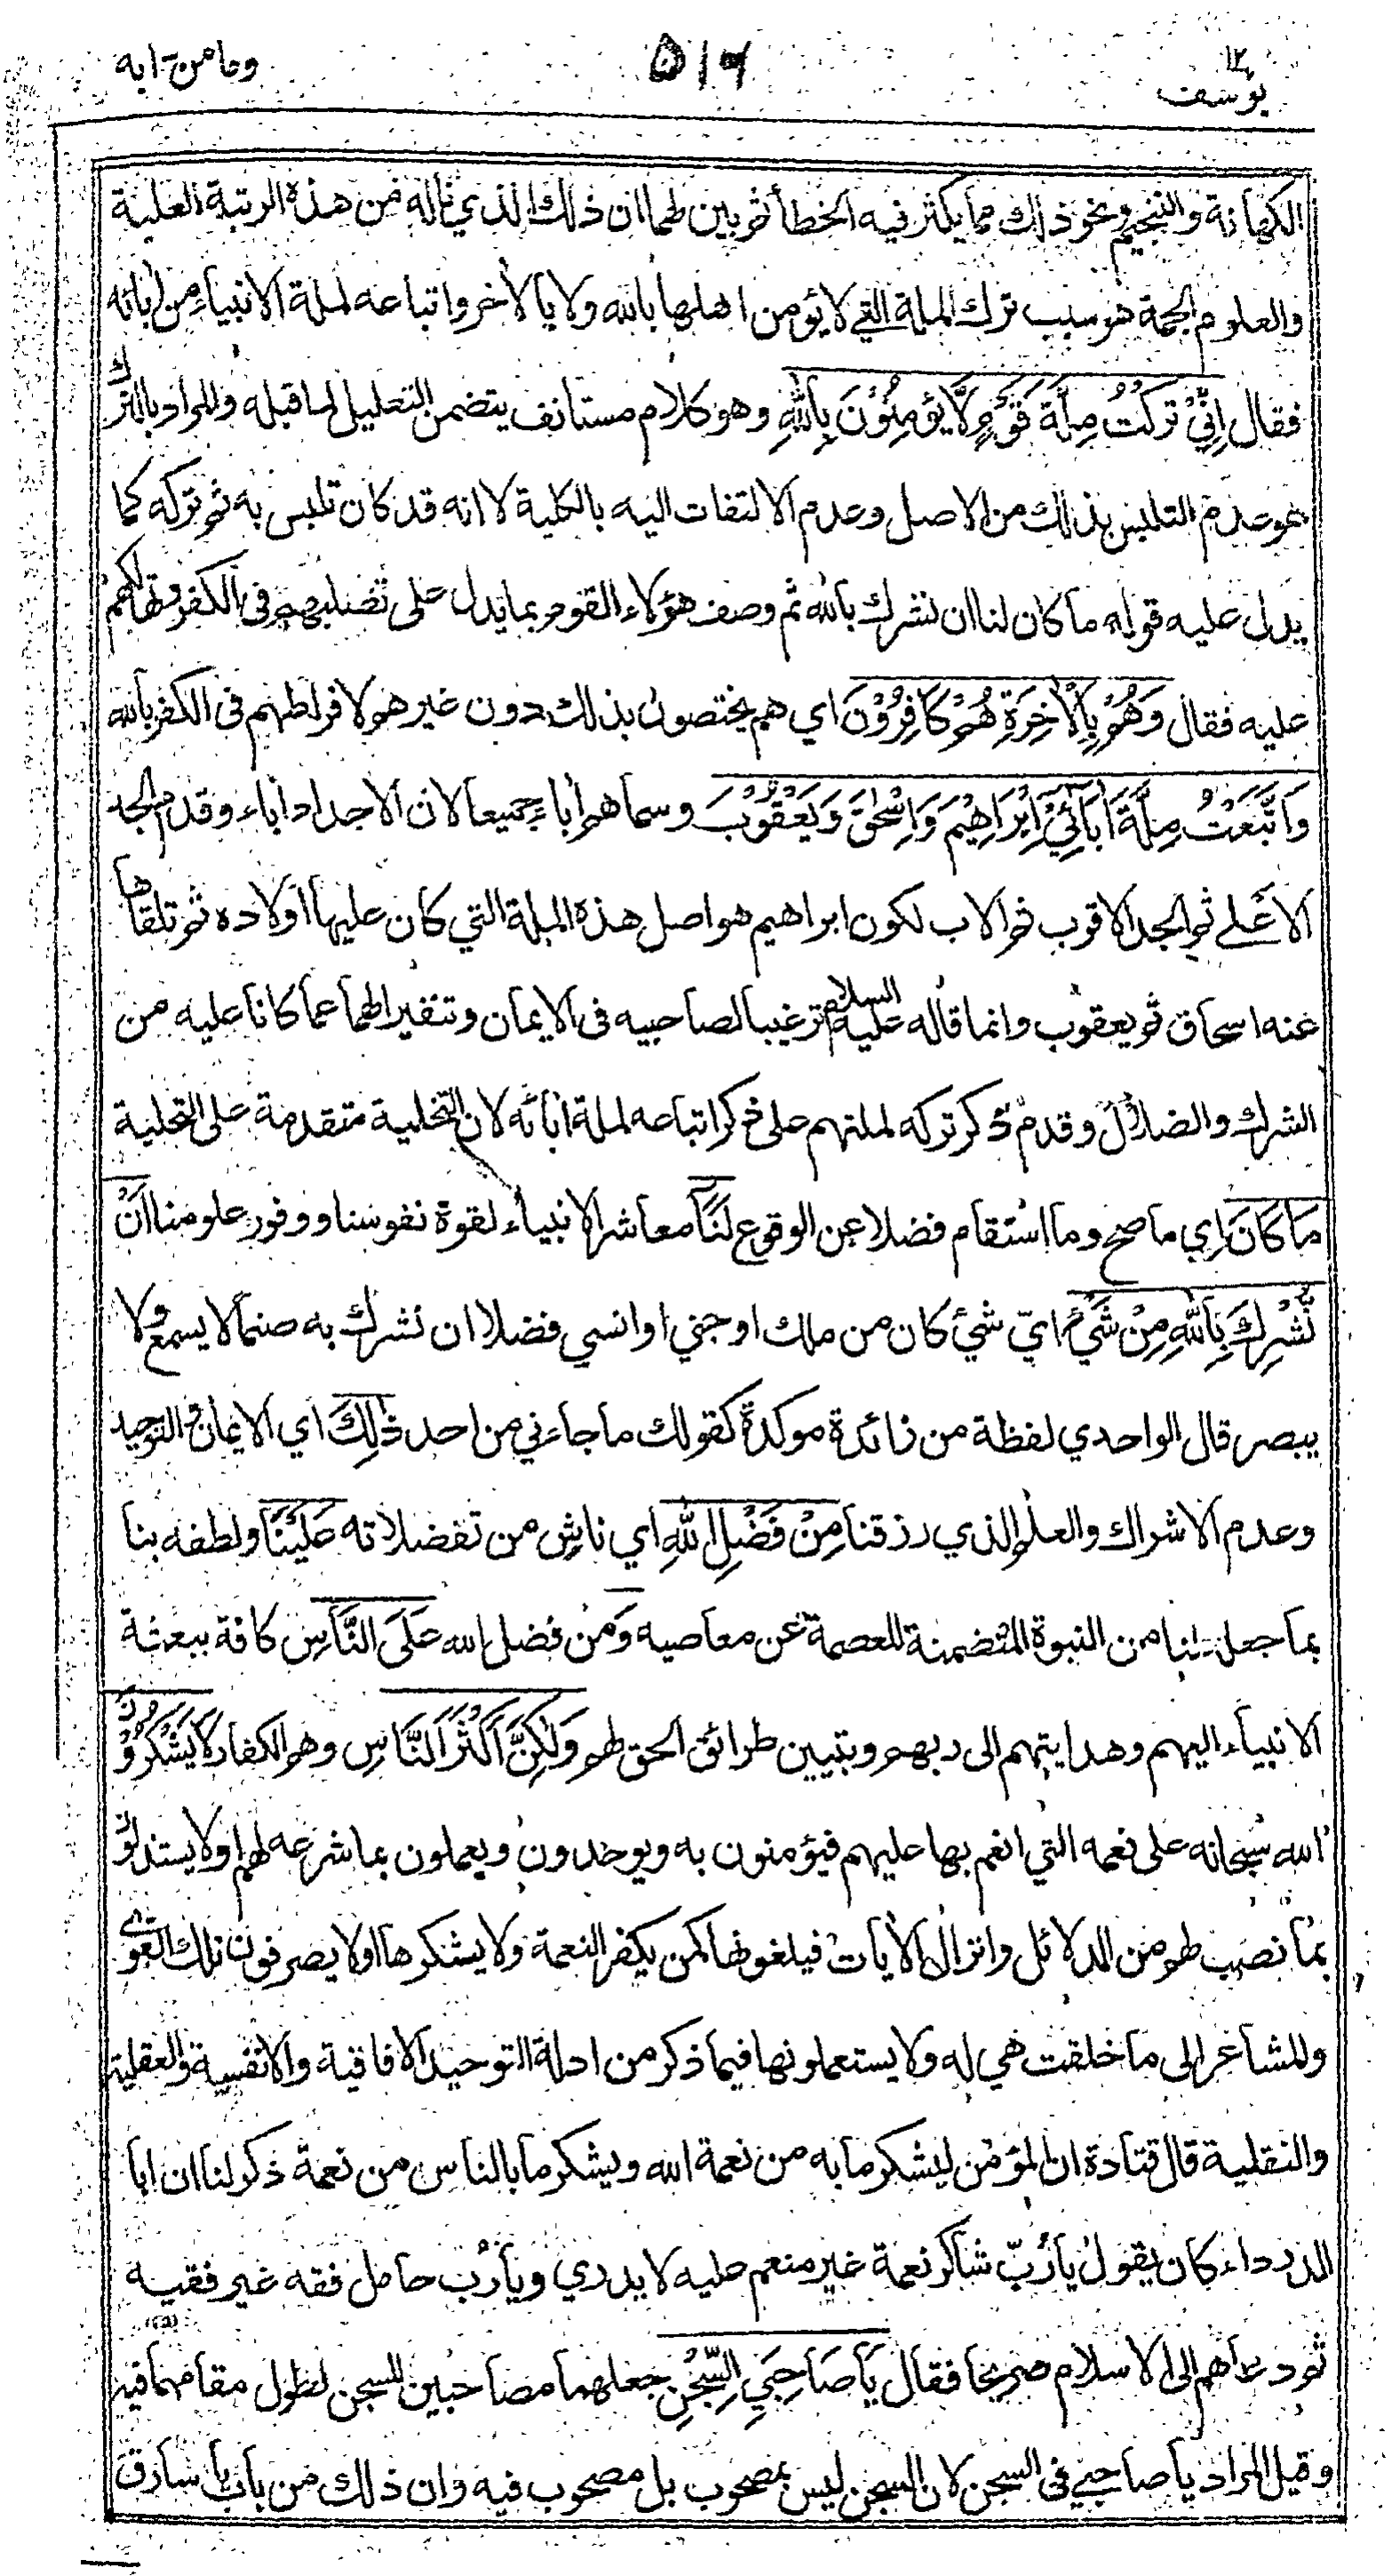 وما من آية
٥١٦
يوسف ١٢
الكهانة والتنجيم ونحو ذلك مما يكثر فيه الخطأ ثم بين لهما ان ذلك الذي ناله من هذه الرتبة العلية
والعلوم الجمة هو سبب ترك الملة التي لا يؤمن اهلها بالله ولا بالآخر واتباعه لملة الانبياء من اٰبائه
فقال اِنِّيْ تَرَكْتُ مِلَّةَ قَوْمٍ لَّا يُؤْمِنُوْنَ بِاللّٰهِ وهو كلام مستانف يتضمن التعليل لما قبله والمراد بالترك
هو عدم التلبس بذلك من الاصل وعدم الالتفات اليه بالكلية لا انه قد كان تلبس به ثم تركه كما
يدل عليه قوله ما كان لنا ان نشرك بالله ثم وصف هؤلاء القوم بما يدل على تصلبهم في الكفر وتهالكهم
عليه فقال وَهُمْ بِالْاٰخِرَةِ هُمْ كَافِرُوْنَ اي هم يختصون بذلك دون غيرهم لافراطهم في الكفر بالله
وَاتَّبَعْتُ مِلَّةَ اٰبَآئِيْ اِبْرَاهِيْمَ وَاِسْحٰقَ وَيَعْقُوْبَ وسماهم اٰباء جميعا لان الاجداد اٰباء وقدم الجد
الاعلى ثم الجد الاقرب ثم الاب لكون ابراهيم هو اصل هذه الملة التي كان عليها اولاده ثم تلقاها
عنه اسحاق ثم يعقوب وانما قاله عليه السلام ترغيبا لصاحبيه في الايمان وتنفيرا لهما عما كانا عليه من
الشرك والضلال وقدم ذكر تركه لملتهم على ذكر اتباعه لملة اٰبائه لان التخلية متقدمة على التحلية
مَا كَانَ اي ما صح وما استقام فضلا عن الوقوع لَنَآ معاشر الانبياء لقوة نفوسنا ووفور علومنا اَنْ
نُّشْرِكَ بِاللّٰهِ مِنْ شَيْءٍ ايّ شيء كان من ملك او جني او انسي فضلا ان نشرك به صنما لا يسمع ولا
يبصر قال الواحدي لفظة من زائدة موكدة كقولك ما جاءني من احد ذٰلِكَ اي الايمان والتوحيد
وعدم الاشراك والعلم الذي رزقنا مِنْ فَضْلِ اللّٰهِ اي ناش من تفضلاته عَلَيْنَا ولطفه بنا
بما جعل لنا من النبوة المتضمنة للعصمة عن معاصيه وَ من فضل الله عَلَى النَّاسِ كافة ببعثة
الانبياء اليهم وهدايتهم الى ربهم وبتبيين طرائق الحق لهم وَلٰكِنَّ اَكْثَرَ النَّاسِ وهم الكفار لَا يَشْكُرُوْنَ
الله سبحانه على نعمه التي انعم بها عليهم فيؤمنون به ويوحدون ويعملون بما شرعه لهم او لا يستدلون
بما نصب لهم من الدلائل وانزال الاٰيات فيلغونها كمن يكفر النعمة ولا يشكرها او لا يصرفون تلك القوى
والمشاعر الى ما خلقت هي له ولا يستعملونها فيما ذكر من ادلة التوحيد الاٰفاقية والانفسية والعقلية
والنقلية قال قتادة ان المؤمن ليشكر ما به من نعمة الله ويشكر ما بالناس من نعمة ذكر لنا ان ابا
الدرداء كان يقول يا رُبّ شاكر نعمة غير منعم عليه لا يدري ويا رُب حامل فقه غير فقيه
ثم دعاهم الى الاسلام صريحا فقال يَا صَاحِبَيِ السِّجْنِ جعلهما مصاحبين للسجن لطول مقامهما فيه
وقيل المراد يا صاحبي في السجن لان السجن ليس بمصحوب بل مصحوب فيه وان ذلك من باب يا سارق